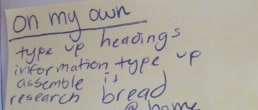 on my own
type up headings
information type up
assemble is
research bread
@ home